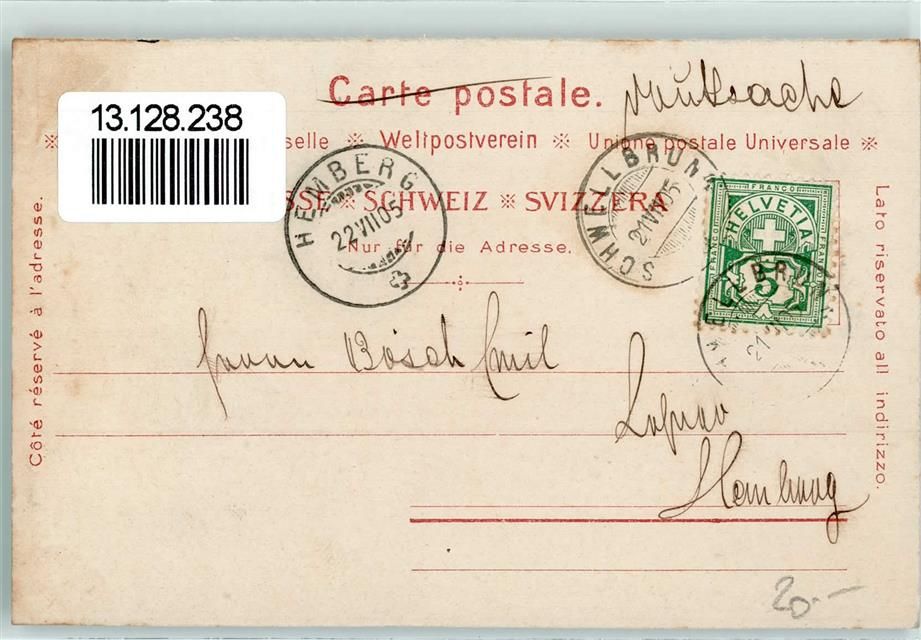 13.128.238
Carte postale. Drucksache
selle ※ Weltpostverein ※ Unione postale Universale ※
SSE ※ SCHWEIZ ※ SVIZZERA
Nur für die Adresse.
HEMBERG
22 VII 05
SCHWELLBRUNN
21 VII 05
FRANCO
HELVETIA
FRANCO
FRANCO
5
21
Côté réservé à l'adresse.
Lato riservato all indirizzo.
Herrn Bösch Emil
Lehrer
Hemberg
20.-